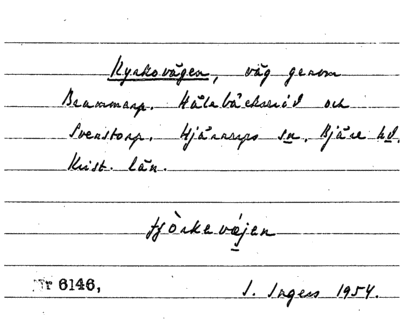 Kyrkovägen, väg genom
Brammarp. Hålebäcksröd och
Svenstorp. Hjärnarps sn. Bjäre hd.
Krist. län.
tjörkevæjen
Nr 6146,
I. Ingers 1954.